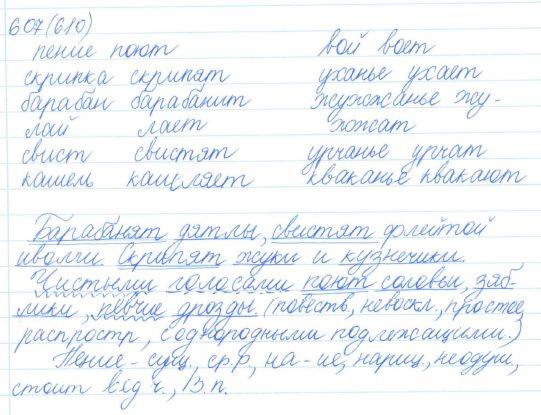 607(610)
пение поют вой воет
скрипка скрипят уханье ухает
барабан барабанит жужжанье жу-
лай лает жжат
свист свистят урчанье урчат
кашель кашляет кваканье квакают
Барабанят дятлы, свистят флейтой
иволги. Скрипят жуки и кузнечики.
Чистыми голосами поют соловьи, зяб-
лики, певчие дрозды. (повеств, невоскл., простое,
распростр, с однородными подлежащими.)
Пение - сущ., ср.р, на -ие, нариц., неодуш.,
стоит в ед ч., В.п.